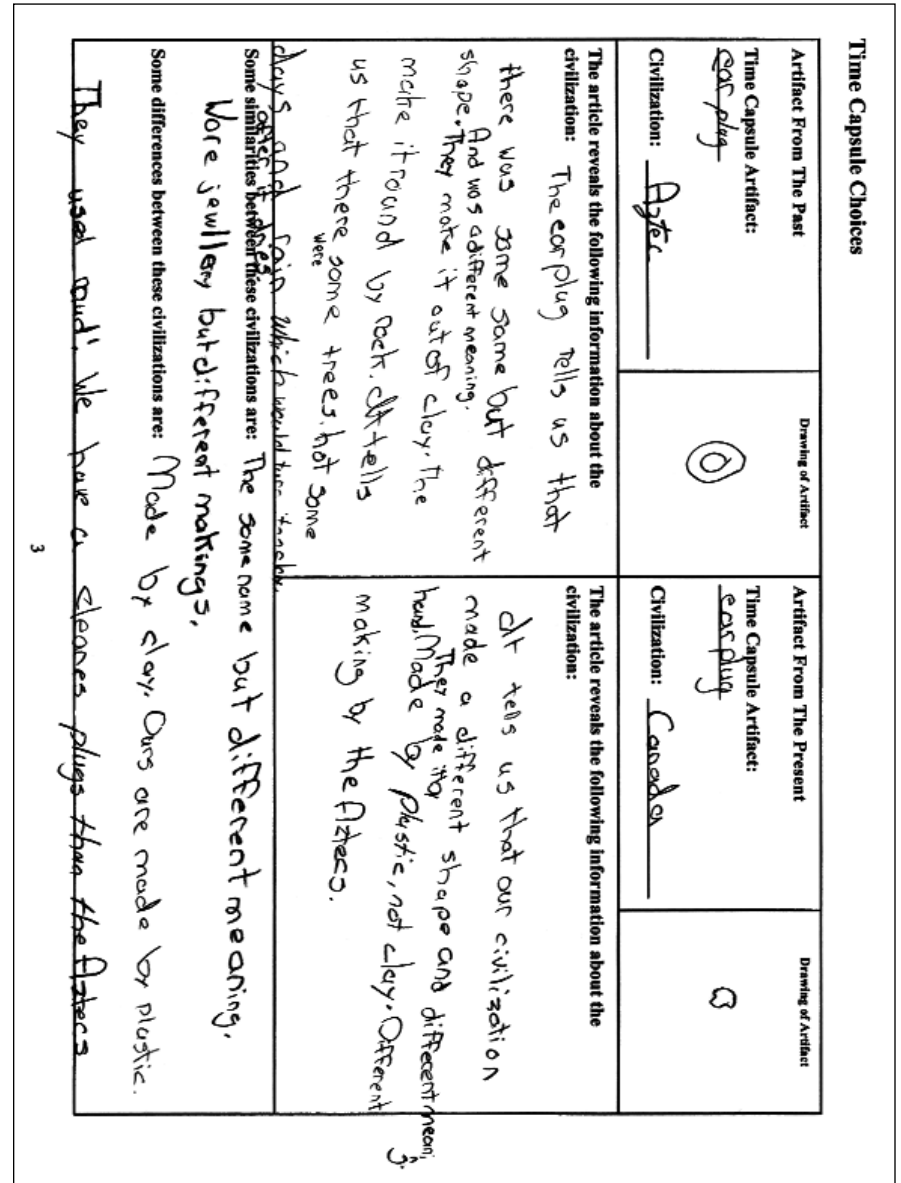 Time Capsule Choices
Artifact From The Past
Time Capsule Artifact:
ear plug
Civilization: Aztec
Drawing of Artifact
Artifact From The Present
Time Capsule Artifact:
ear plug
Civilization: Canada
Drawing of Artifact
The article reveals the following information about the
civilization: The ear plug tells us that
there was some same but different
shape. And was a different meaning.
They make it out of clay. The
make it round by rock. It tells
us that there were some trees. hot some
days and rain which would turn it
after it dries
The article reveals the following information about the
civilization:
It tells us that our civilization
made a different shape and different meaning.
They made it by
hand. Made by plastic, not clay. Different
making by the Aztecs.
Some similarities between these civilizations are: The same name but different meaning.
Wore jewllery but different makings.
Some differences between these civilizations are: Made by clay. Ours are made by plastic.
They used mud. We have a cleanes plugs than the Aztecs
3